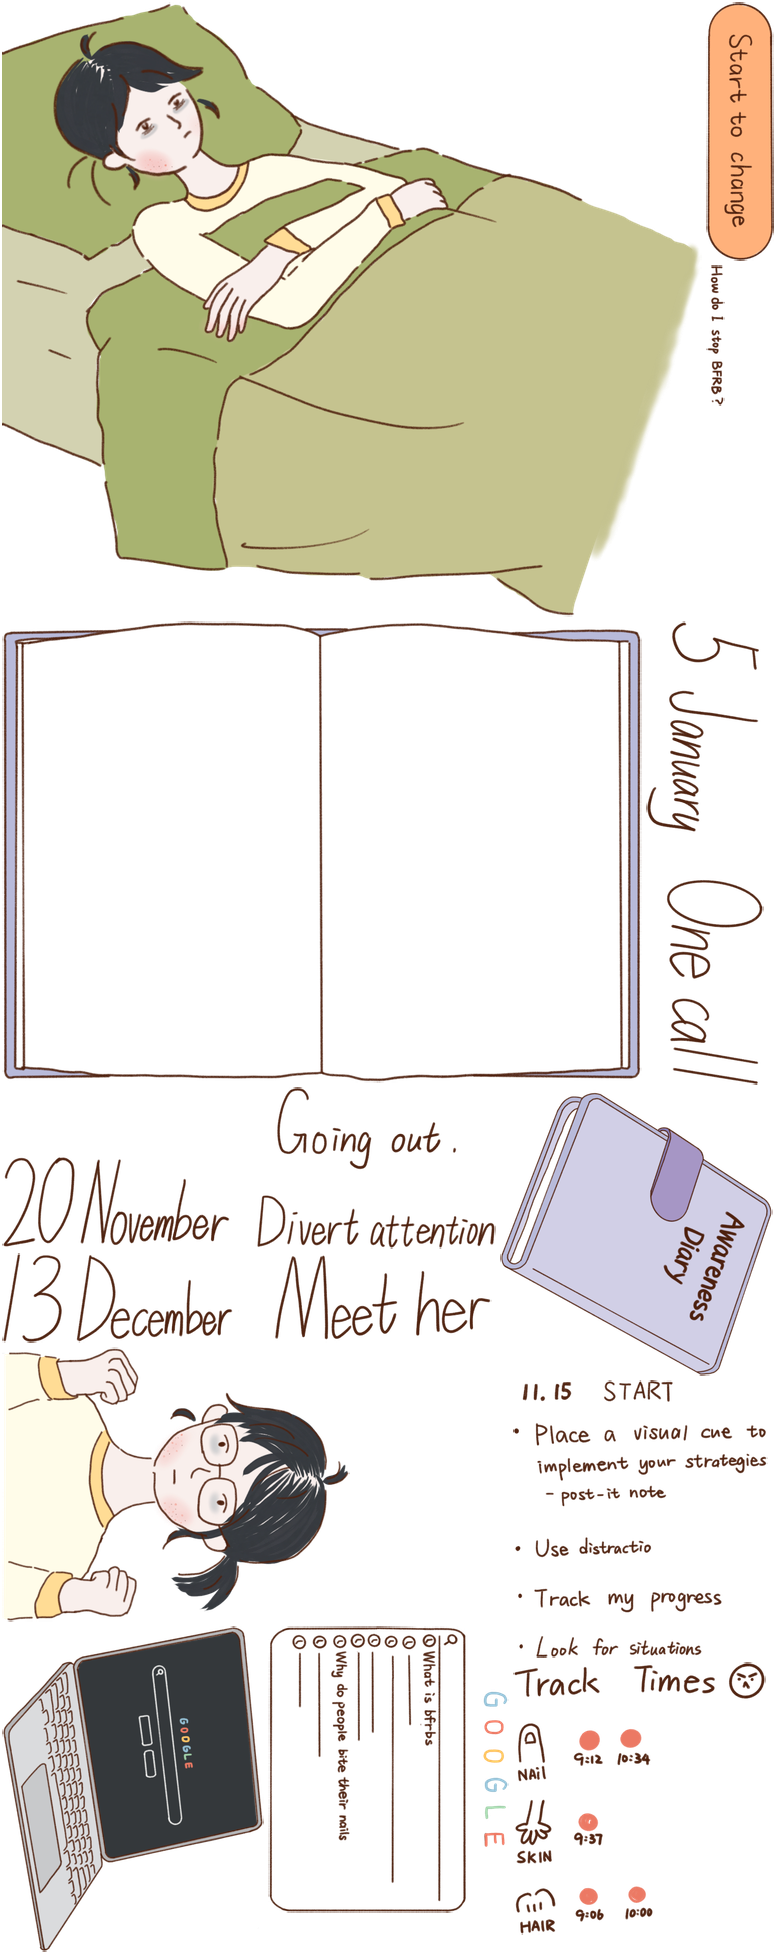 Start to change
How do I stop BFRB?
5 January One call
Going out.
20 November Divert attention
13 December Meet her
Awareness
Diary
11.15 START
• Place a visual cue to
implement your strategies
- post-it note
• Use distractio
• Track my progress
• Look for situations
Track Times
NAil
9:12 10:34
SKIN
9:37
HAIR
9:06 10:00
GOOGLE
What is bfrbs
Why do people bite their nails
GOOGLE